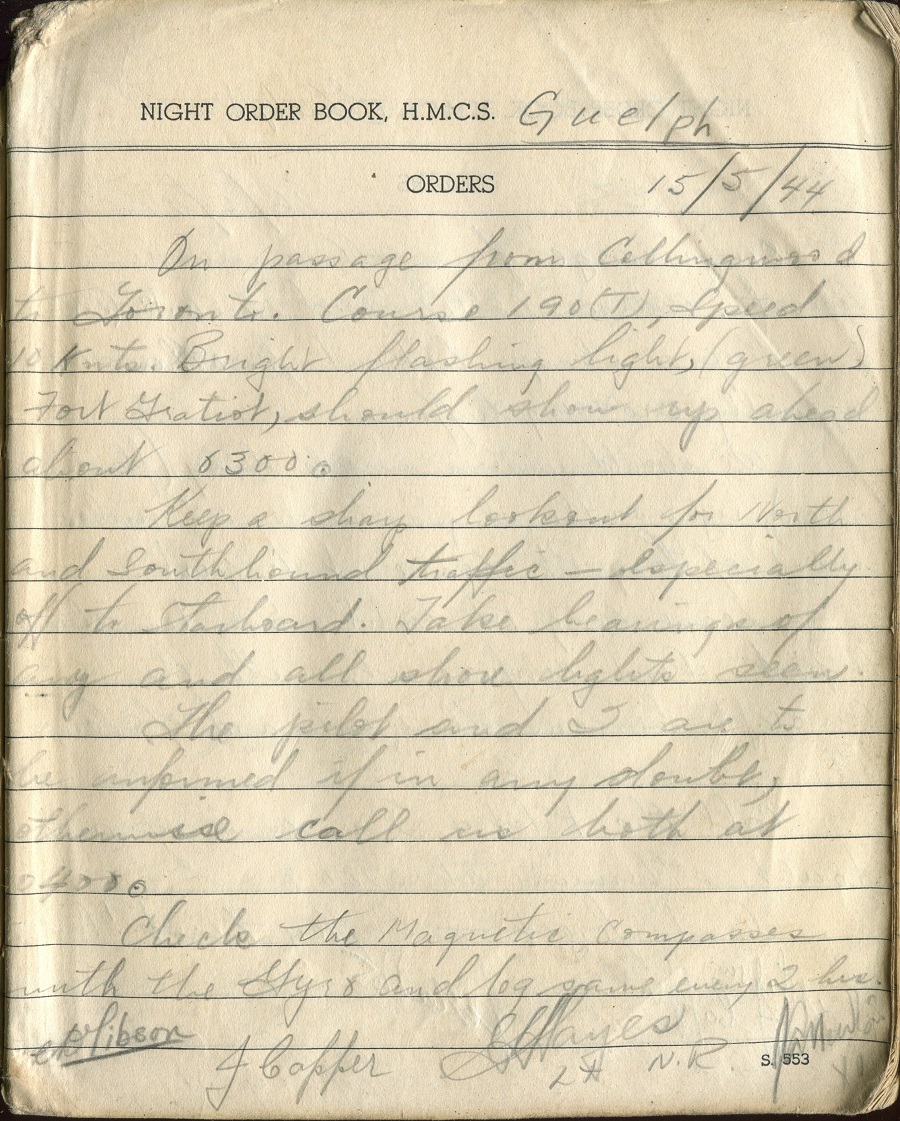 NIGHT ORDER BOOK, H.M.C.S. Guelph
ORDERS 15/5/44
On passage from Collingwood
to Toronto. Course 190(T), Speed
10 Knts. Bright flashing light, (green)
Fort Gratiot, should show up ahead
about 0300.
Keep a sharp lookout for North
and Southbound traffic — Especially
off to Starboard. Take bearings of
any and all shore lights seen.
The pilot and I are to
be informed if in any doubt,
otherwise call us both at
0400.
Check the Magnetic Compasses
with the Gyro and log same every 2 hrs.
Gibson
J Copper
Hayes
Lt N.R.
S. 553